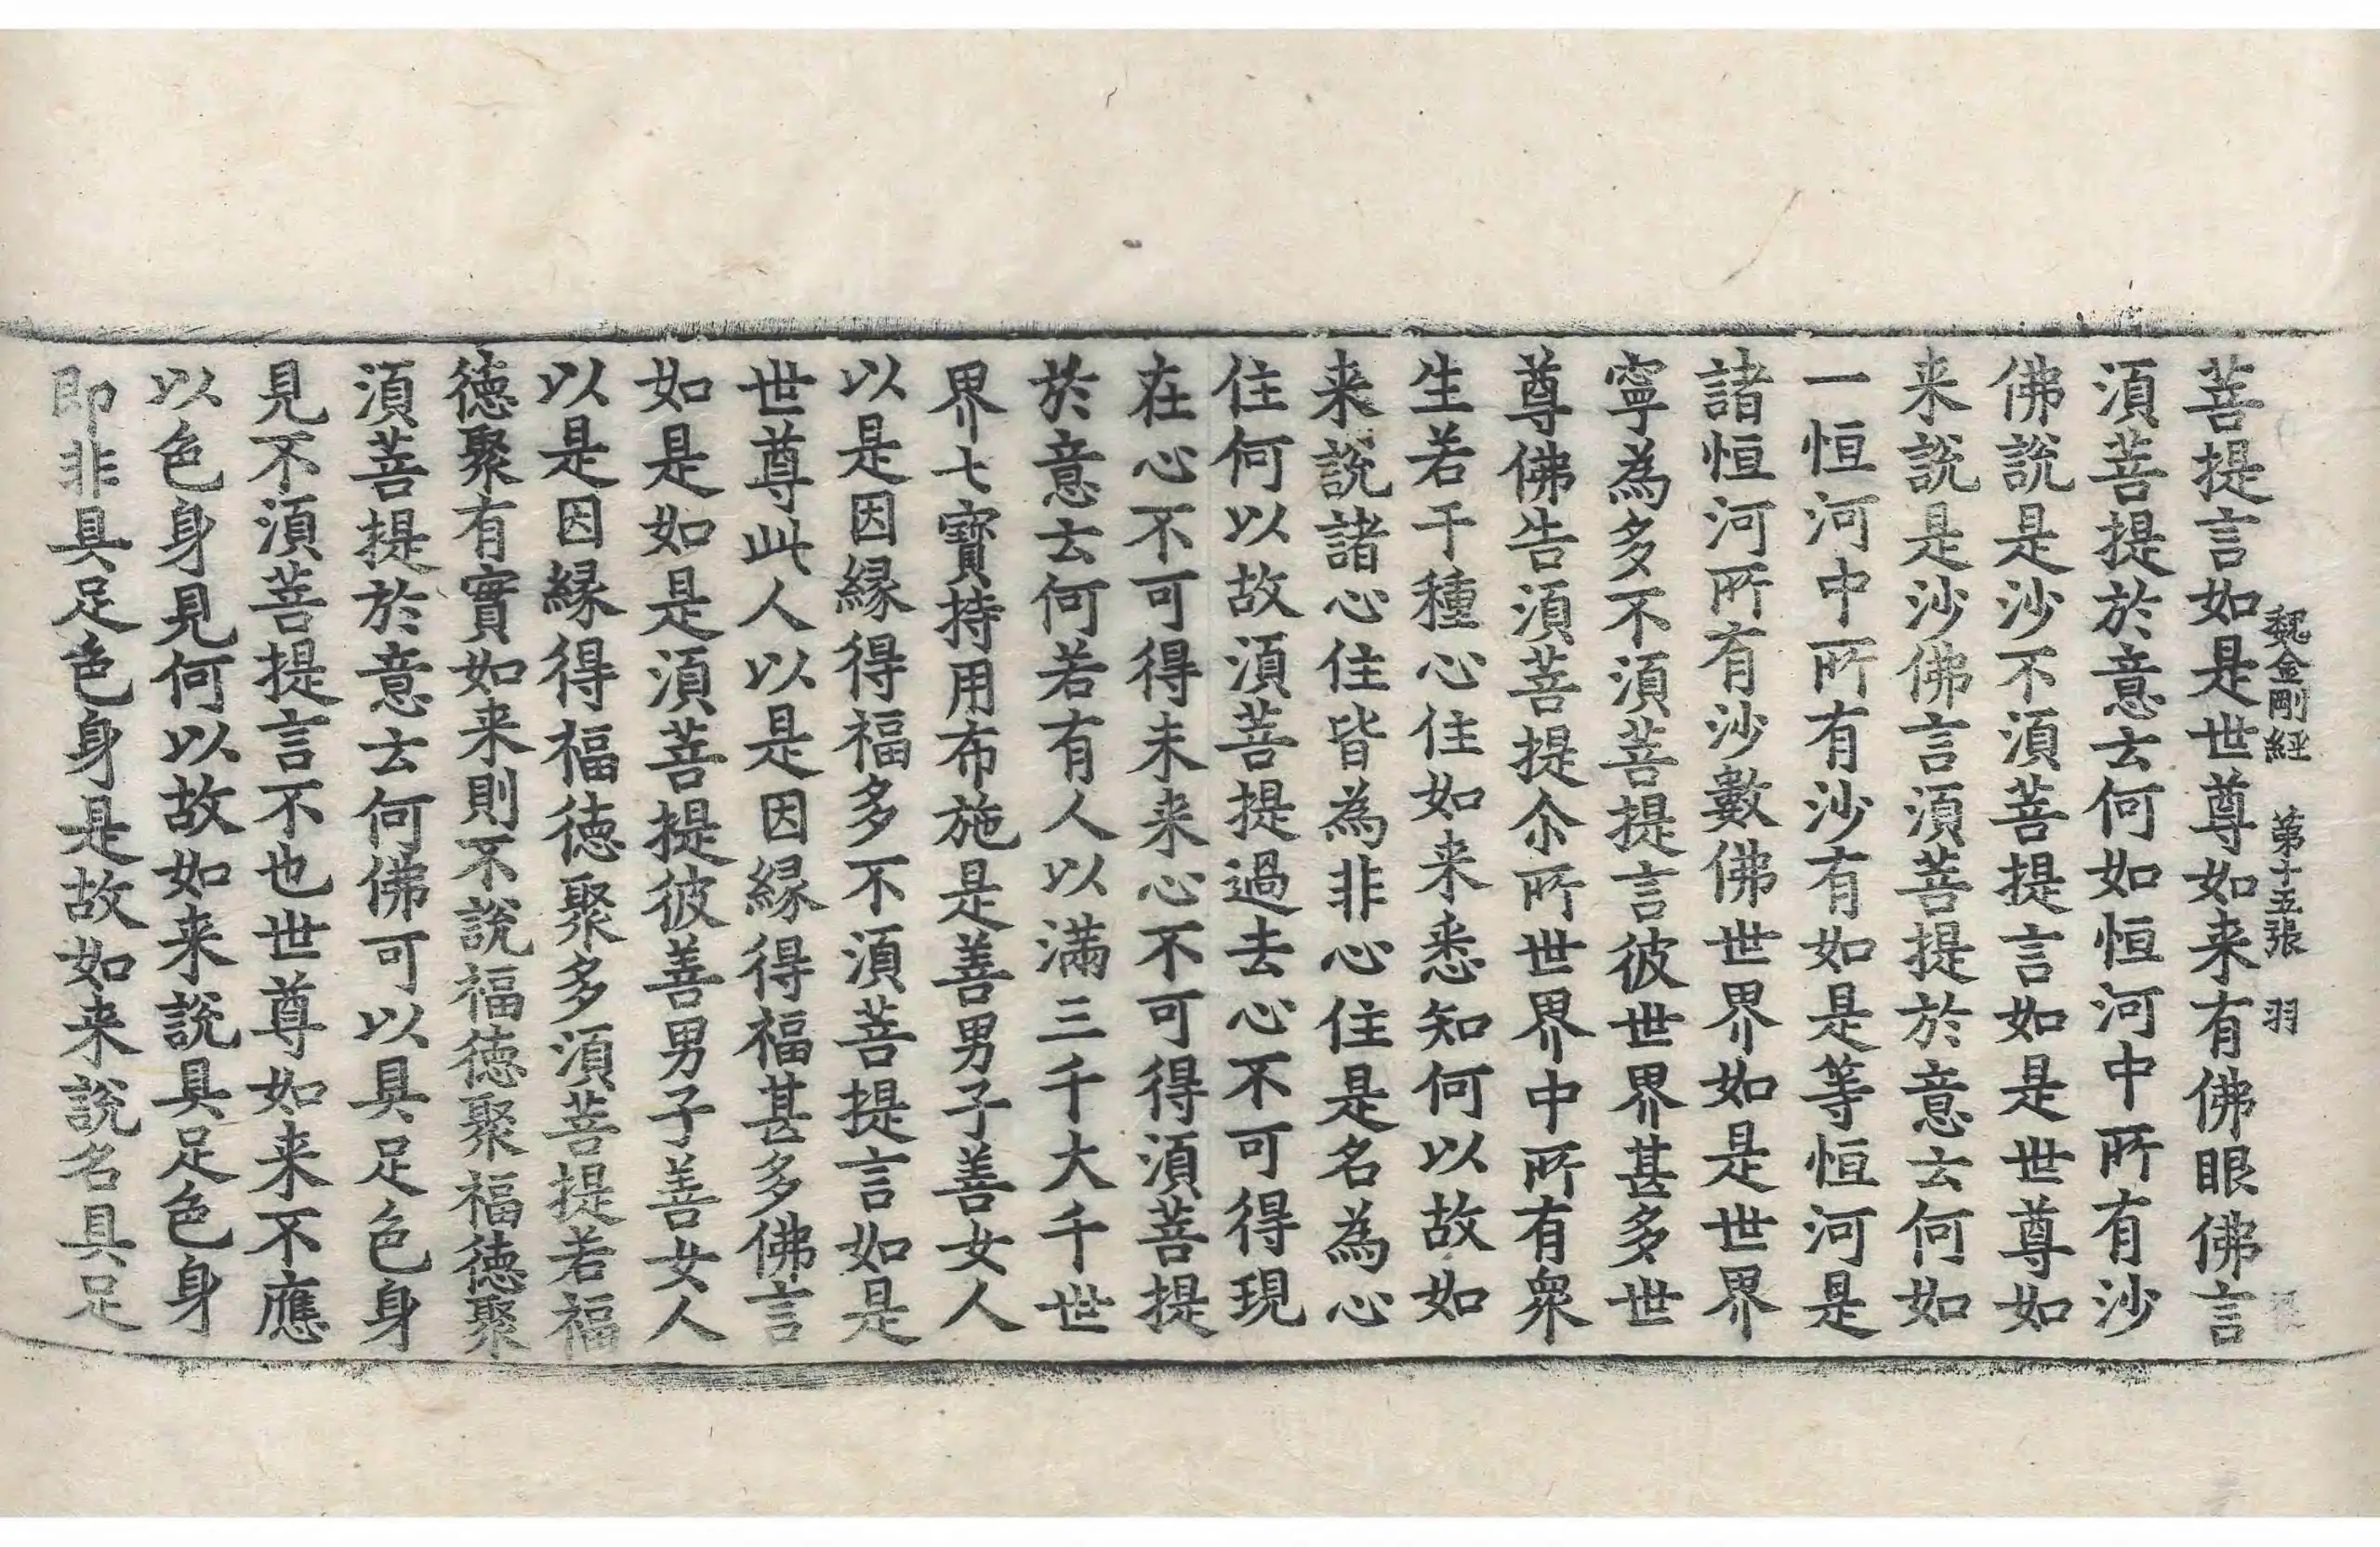 魏金剛経 第十五張 羽
菩提言如是世尊如来有佛眼佛言
湏菩提於意云何如恒河中所有沙
佛說是沙不湏菩提言如是世尊如
来說是沙佛言湏菩提於意云何如
一恒河中所有沙有如是等恒河是
諸恒河所有沙數佛世界如是世界
寧為多不湏菩提言彼世界甚多世
尊佛告湏菩提尒所世界中所有衆
生若干種心住如来悉知何以故如
来說諸心住皆為非心住是名為心
住何以故湏菩提過去心不可得現
在心不可得未来心不可得湏菩提
於意云何若有人以滿三千大千世
界七寶持用布施是善男子善女人
以是因緣得福多不湏菩提言如是
世尊此人以是因緣得福甚多佛言
如是如是湏菩提彼善男子善女人
以是因緣得福徳聚多湏菩提若福
徳聚有實如来則不說福徳聚福徳聚
湏菩提於意云何佛可以具足色身
見不湏菩提言不也世尊如来不應
以色身見何以故如来說具足色身
即非具足色身是故如来說名具足